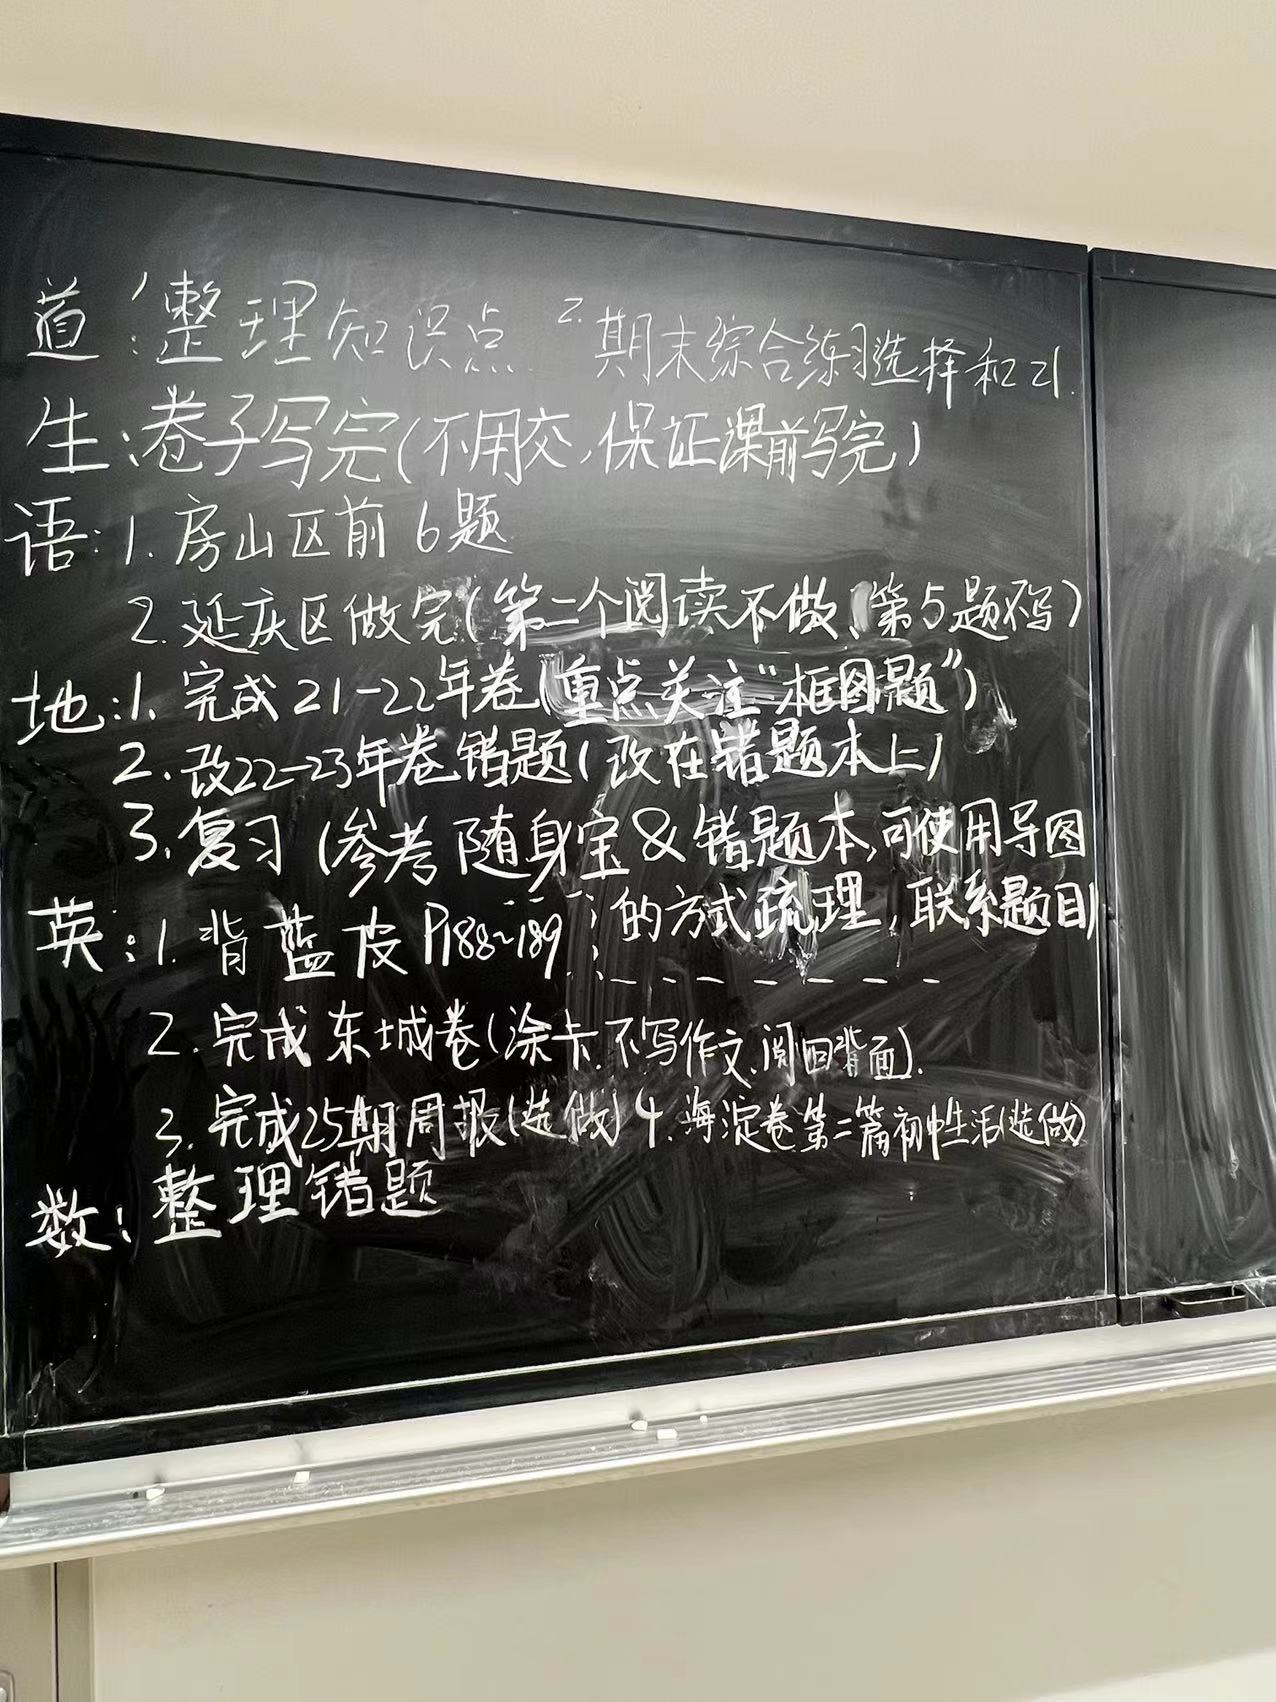 道：1.整理知识点 2.期末综合练习选择和21.
生：卷子写完(不用交，保证课前写完)
语：1.房山区前6题
2.延庆区做完(第二个阅读不做，第5题不写)
地：1.完成21-22年卷(重点关注“框图题”)
2.改22-23年卷错题(改在错题本上)
3.复习(参考随身宝&错题本，可使用导图
的方式疏理，联系题目)
英：1.背蓝皮P188~189
2.完成东城卷(涂卡，不写作文，阅回背面).
3.完成25期周报(选做) 4.海淀卷第二篇初中生活(选做)
数：整理错题